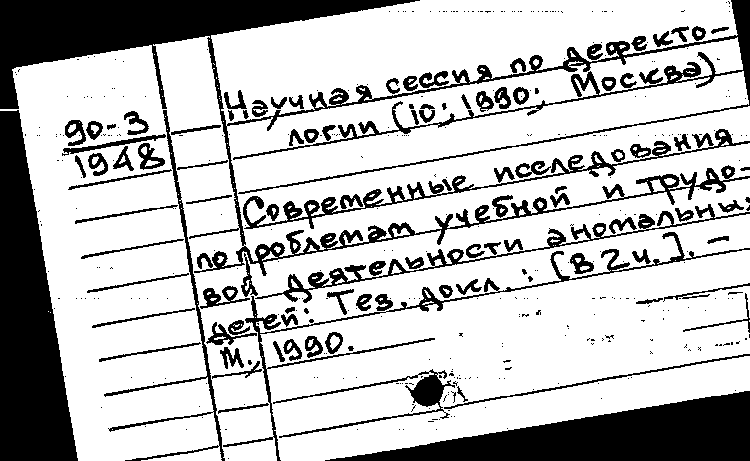 90-3
1948
Научная сессия по дефекто-
логии (10; 1990; Москва)
Современные исследования
по проблемам учебной и трудо-
вой деятельности аномальных
детей: Тез. докл.: [В 2 ч.]. –
М., 1990.